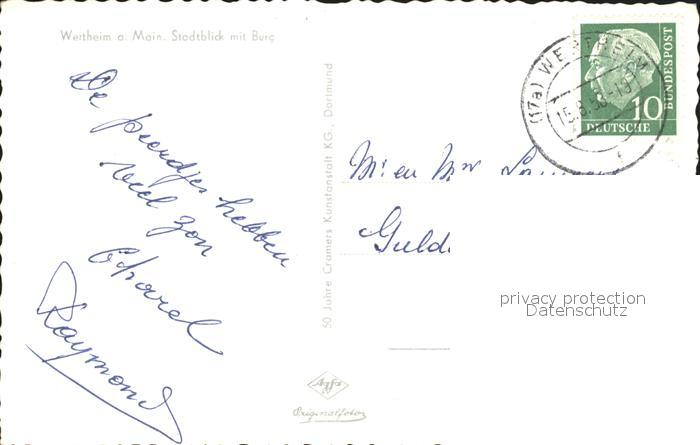 Wertheim a. Main. Stadtblick mit Burg
De
hebben
veel zon
Raymond
50 Jahre Cramers Kunstanstalt KG., Dortmund
Agfa
Originalfoto
(17a) WERTHEIM
15.8.58
10
DEUTSCHE
BUNDESPOST
Mr en Mw
Guld
privacy protection
Datenschutz